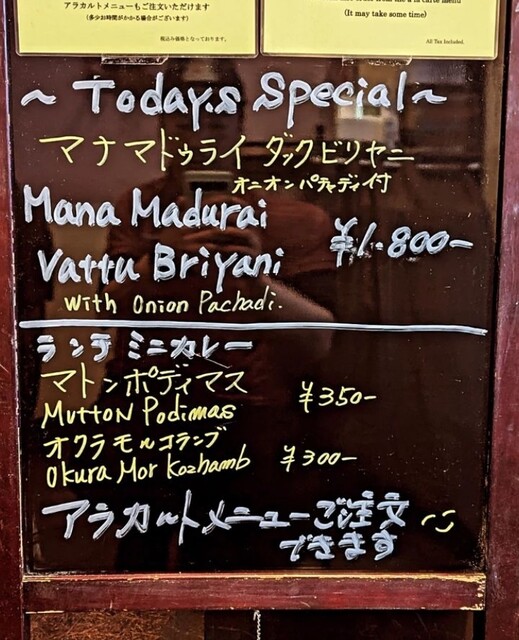 アラカルトメニューもご注文いただけます
(多少お時間がかかる場合がございます)
税込み価格となっております。
(It may take some time)
All Tax Included.
~ Today.s Special ~
マナマドゥライ ダックビリヤニ
オニオンパチャディ付
Mana Madurai
Vattu Briyani
¥1.800-
with Onion Pachadi.
ランチ ミニカレー
マトンポディマス
Mutton Podimas
¥350-
オクラモルコランブ
Okura Mor Kozhamb
¥300-
アラカルトメニューご注文
できます